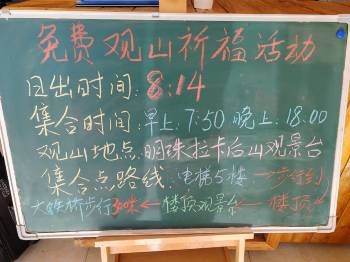 免费观山祈福活动
日出时间:8:14
集合时间:早上:7:50 晚上:18:00
观山地点:明珠拉卡后山观景台
集合点路线:电梯5楼→步行到
楼顶→楼顶观景台→
桥步行30米